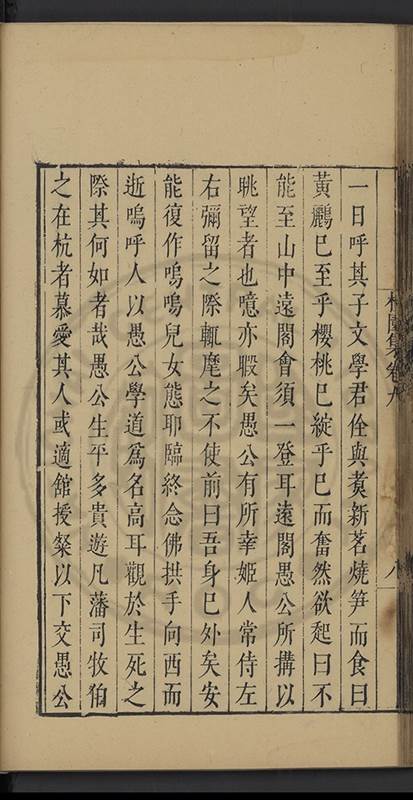 一日呼其子文學君佺與煑新茗燒笋而食曰
黃鸝巳至乎櫻桃巳綻乎巳而奮然欲起曰不
能至山中遠閣會須一登耳遠閣愚公所搆以
眺望者也噫亦暇矣愚公有所幸姬人常侍左
右彌留之際輒麾之不使前曰吾身巳外矣安
能復作嗚嗚兒女態耶臨終念佛拱手向西而
逝嗚呼人以愚公學道爲名高耳觀於生死之
際其何如者哉愚公生平多貴遊凡藩司牧伯
之在杭者慕愛其人或適舘授粲以下交愚公
園集卷九
八